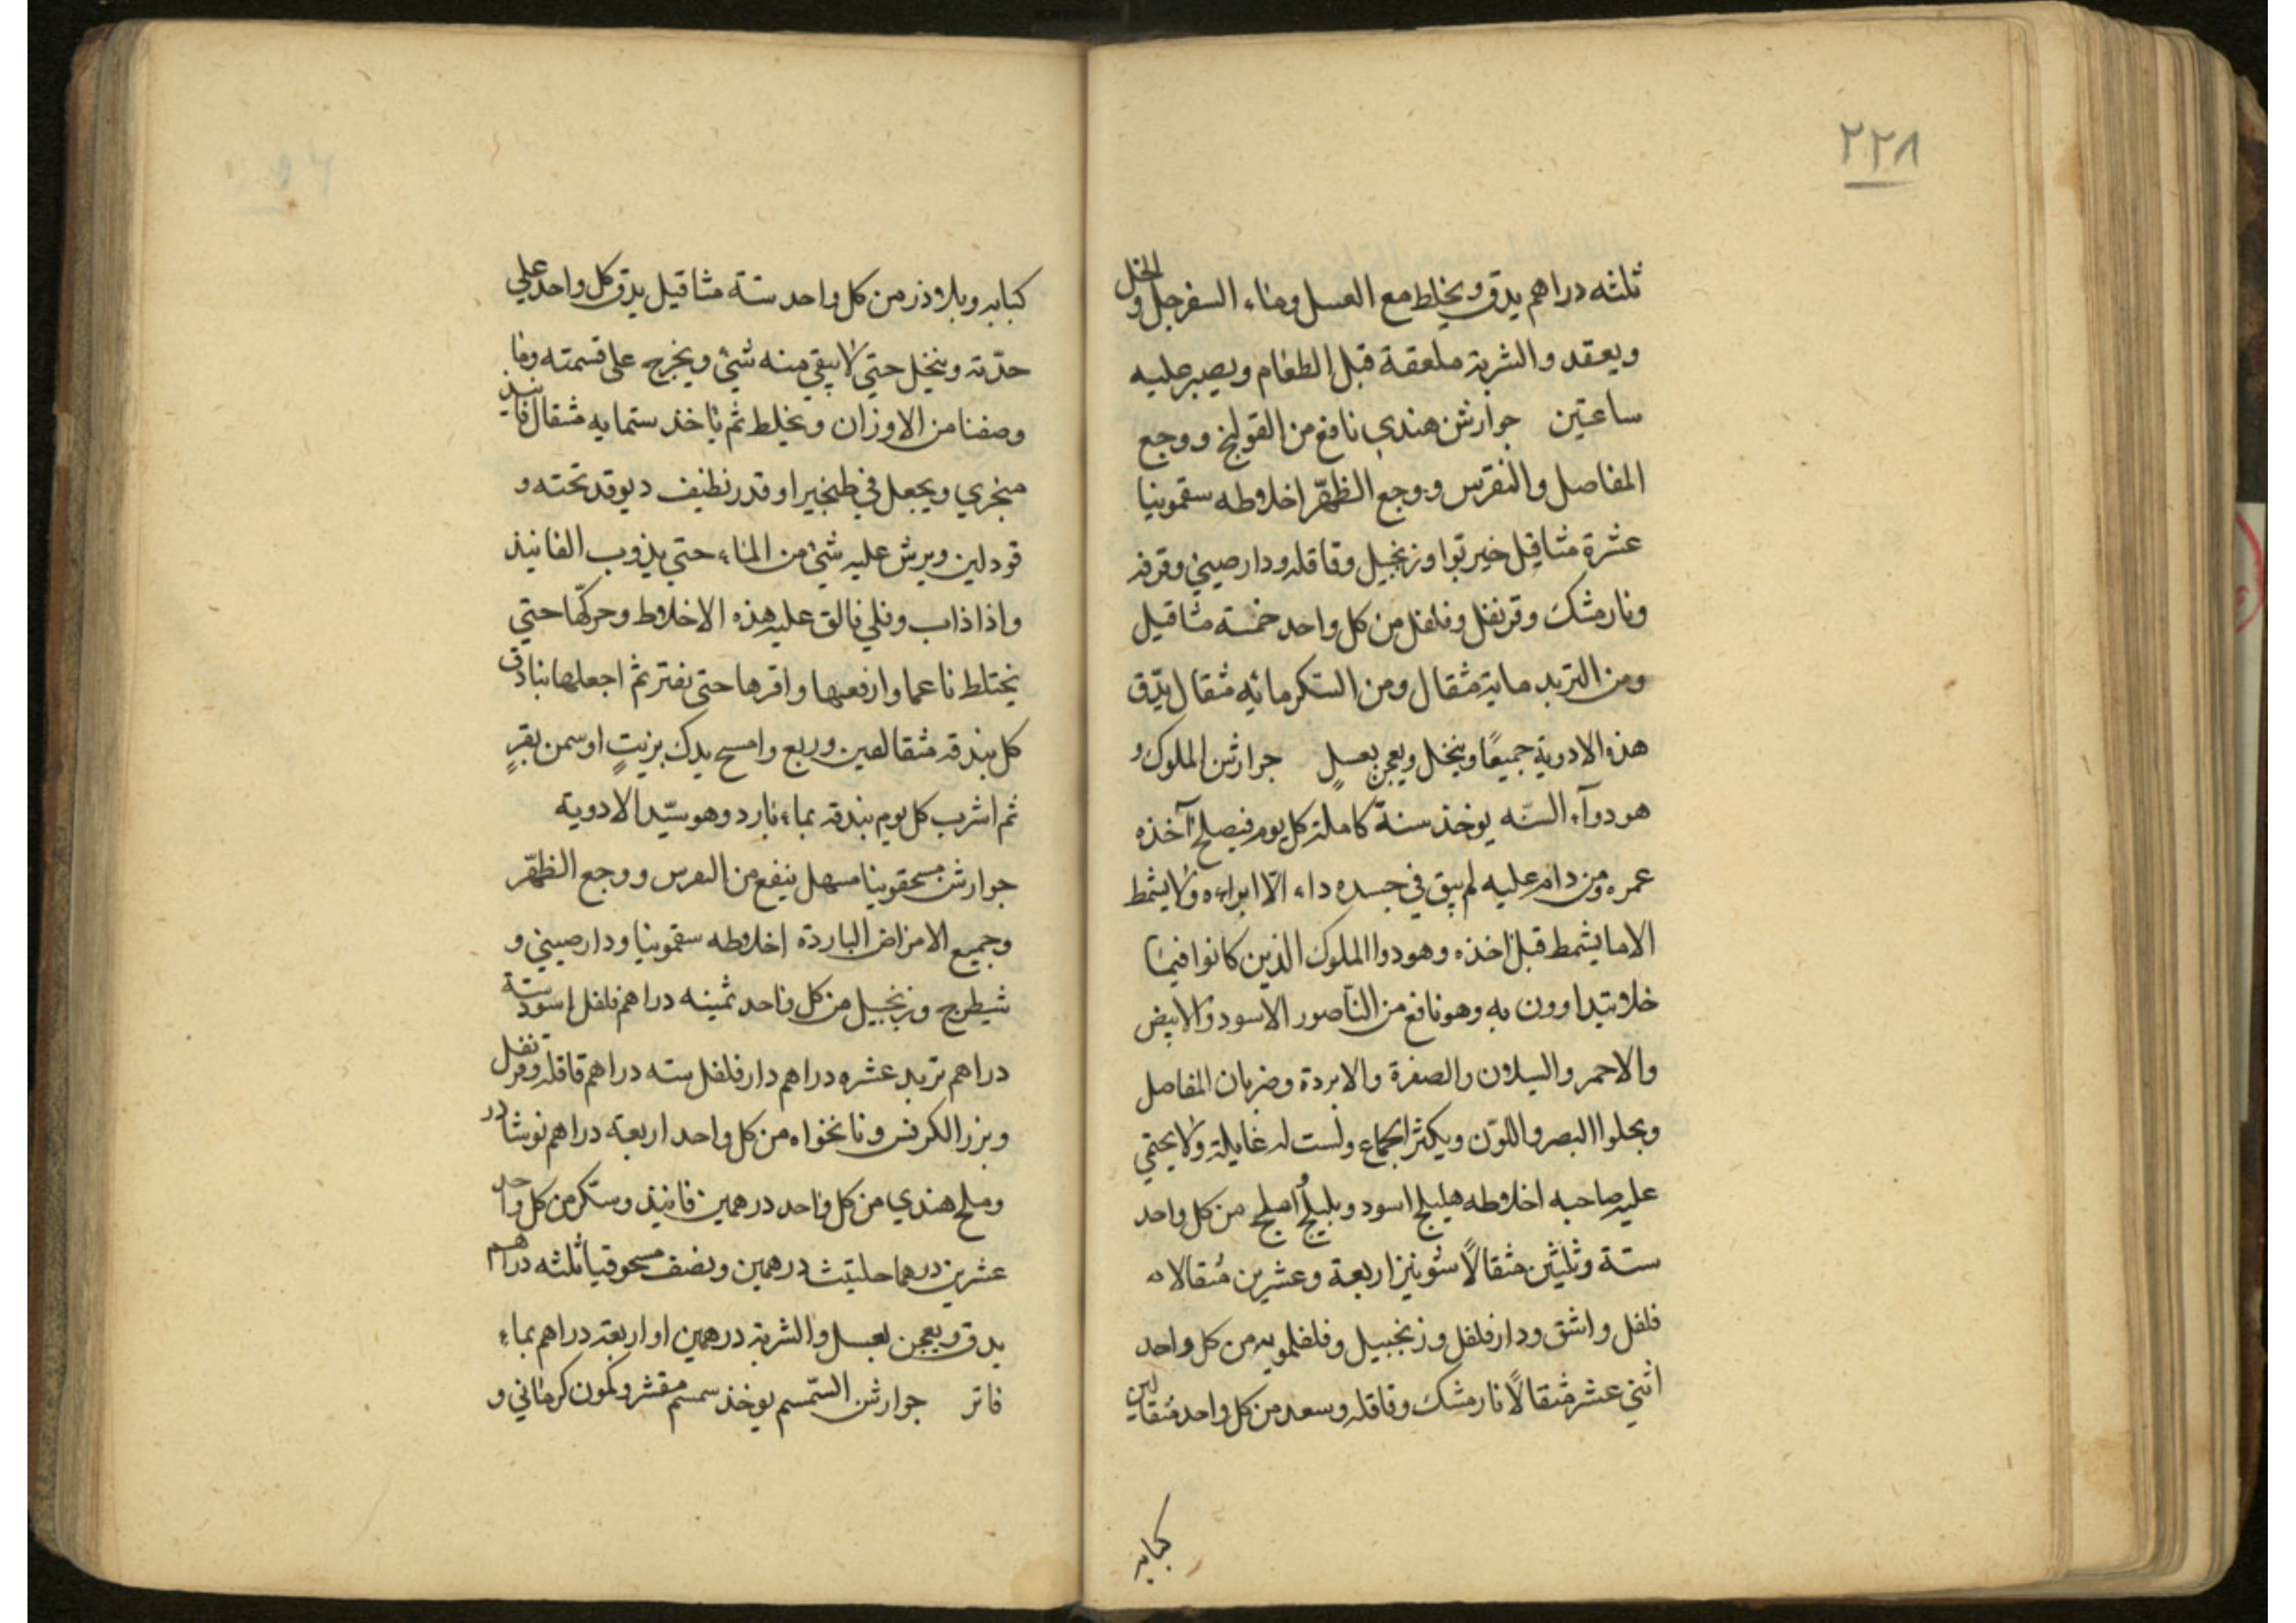 ٢٢٨
ثلثه دراهم يدق ويخلط مع العسل وماء السفرجل والخل
ويعقد والشربة ملعقة قبل الطعام ويصبر عليه
ساعتين جوارشن هندي نافع من القولنج ووجع
المفاصل والنقرس ووجع الظهر اخلاطه سقمونيا
عشرة مثاقيل خيربوا وزنجبيل وقاقله ودارصيني وقرفه
ونارمشك وقرنفل وفلفل من كل واحد خمسة مثاقيل
ومن التربد ماية مثقال ومن السكر مائه مثقال يدق
هذه الادوية جميعًا وينخل ويعجن بعسلٍ جوارشن الملوك و
هو دوآء السنه يوخذ سنة كاملة كل يوم فيصلح آخذه
عمره ومن دام عليه لم يبق في جسده داء الّا ابراءه ولا يشمط
الا ما يشمط قبل اخذه وهو دوا الملوك الذين كانوا فيما
خلا يتداوون به وهو نافع من الناصور الاسود والابيض
والاحمر والسيلان والصفرة والابردة وضربان المفاصل
ويجلوا البصر واللون ويكثر الجماع ولست له غايلة ولا يحتمي
عليه صاحبه اخلاطه هليلج اسود وبليلج املج من كل واحد
ستة وثلثين مثقالًا شونيز اربعة وعشرين مثقالا
فلفل واشق ودارفلفل وزنجبيل وفلفلمويه من كل واحد
اثني عشر مثقالًا نارمشك وقاقله وسعد من كل واحد مثقالين
كبابه
كبابه وبلاذر من كل واحد ستة مثاقيل يدق كل واحد علي
حدته وينخل حتي لا يبقي منه شئ ويخرج على قسمته وما
وصفنا من الاوزان ويخلط ثم ياخذ ستمايه مثقال فانيذ
سجزي ويجعل في طنجير او قدر نظيف ديوقد تحته و
قود لين ويرش عليه شئ من الماء حتي يذوب الفانيذ
واذا ذاب وغلي فالق عليه هذه الاخلاط وحركّها حتي
يختلط ناعما وارفعها واقرها حتى يفتر ثم اجعلها بنادق
كل بندقه مثقالين وربع وامسح يدك بزيتٍ او سمن بقرٍ
ثم اشرب كل يوم بندقه بماء بارد وهو سيّد الادوية
جوارشن مسحقونيا مسهل ينفع من النقرس ووجع الظهّر
وجميع الامراض الباردة اخلاطه سقمونيا ودارصيني و
شيطرج وزنجبيل من كل واحد ثمينه دراهم فلفل اسود ستة
دراهم تربد عشره دراهم دارفلفل سته دراهم قاقله وقرنفل
وبزر الكرفس ونانخواه من كل واحد اربعة دراهم نوشادر
وملح هندي من كل واحد درهمين فانيذ وسكر من كل واحد
عشرين درهما حلتيت درهمين ونصف مسحوقيا ثلثه دراهم
يدق ويعجن بعسل والشربة درهمين او اربعة دراهم بماءٍ
فاتر جوارشن السّمسم يوخذ سمسم مقشر وكمون كرماني و